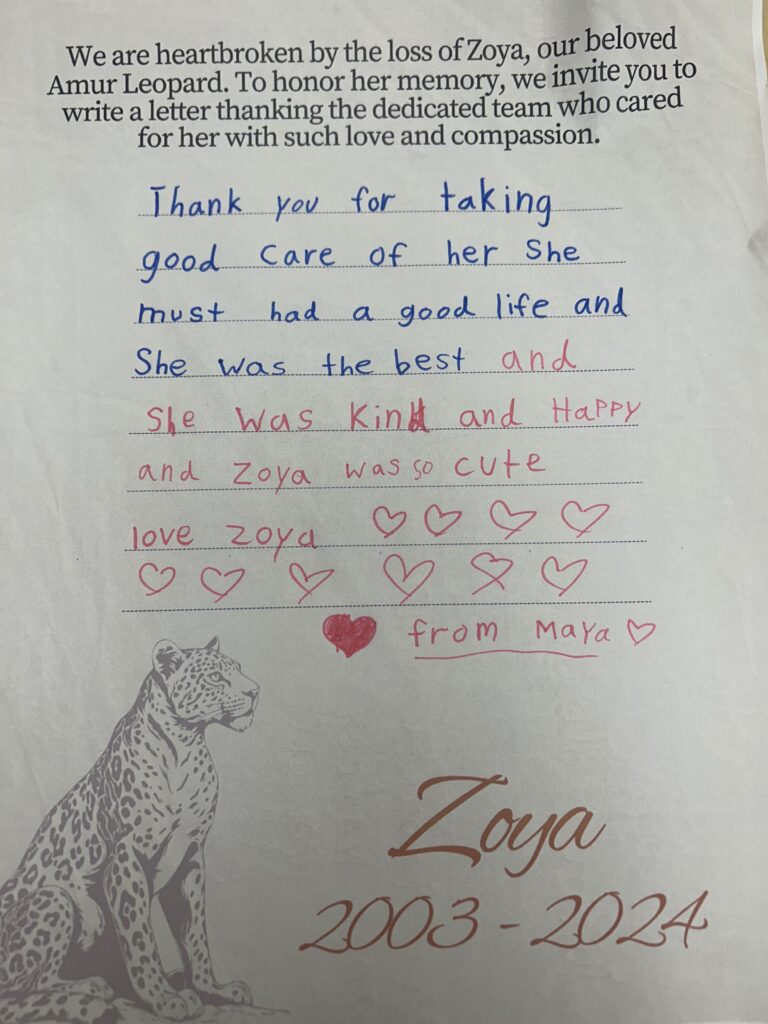 We are heartbroken by the loss of Zoya, our beloved
Amur Leopard. To honor her memory, we invite you to
write a letter thanking the dedicated team who cared
for her with such love and compassion.
Thank you for taking
good care of her She
must had a good life and
She was the best and
She was Kind and HaPPY
and Zoya was so cute
love zoya
from Maya
Zoya
2003 - 2024